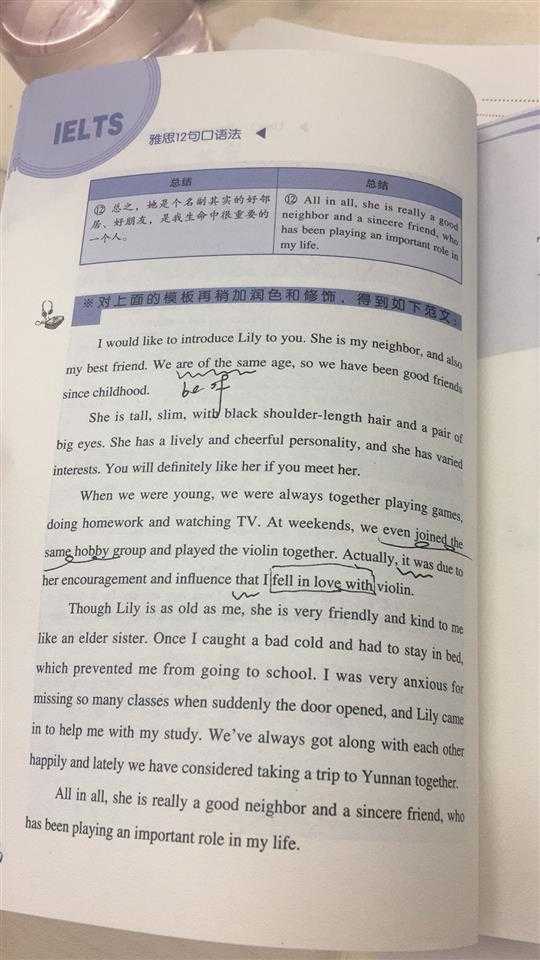 IELTS
雅思12句口语法 ◀
总结
⑫ 总之，她是个名副其实的好邻
居、好朋友，是我生命中很重要的
一个人。
总结
⑫ All in all, she is really a good
neighbor and a sincere friend, who
has been playing an important role in
my life.
※对上面的模板再稍加润色和修饰，得到如下范文：
I would like to introduce Lily to you. She is my neighbor, and also
my best friend. We are of the same age, so we have been good friends
since childhood.
be of
She is tall, slim, with black shoulder-length hair and a pair of
big eyes. She has a lively and cheerful personality, and she has varied
interests. You will definitely like her if you meet her.
When we were young, we were always together playing games,
doing homework and watching TV. At weekends, we even joined the
same hobby group and played the violin together. Actually, it was due to
her encouragement and influence that I fell in love with violin.
Though Lily is as old as me, she is very friendly and kind to me
like an elder sister. Once I caught a bad cold and had to stay in bed,
which prevented me from going to school. I was very anxious for
missing so many classes when suddenly the door opened, and Lily came
in to help me with my study. We've always got along with each other
happily and lately we have considered taking a trip to Yunnan together.
All in all, she is really a good neighbor and a sincere friend, who
has been playing an important role in my life.